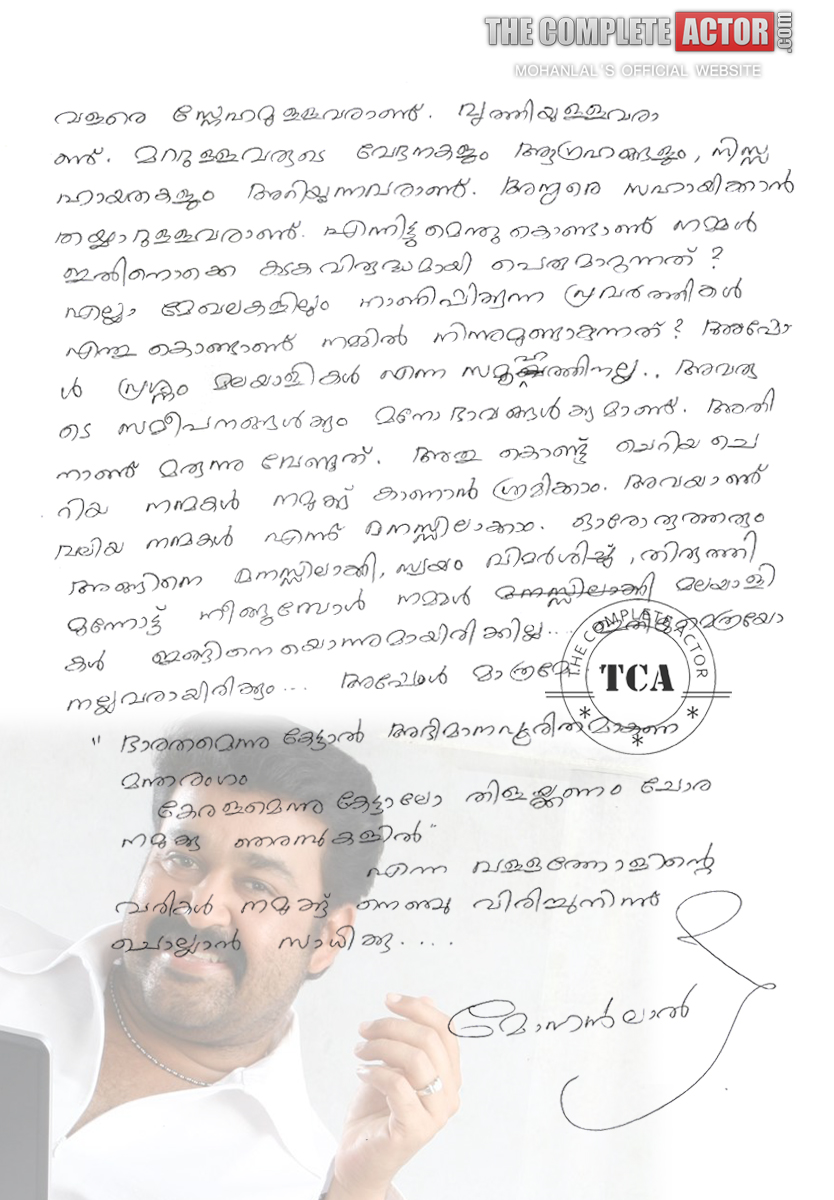 THE COMPLETE ACTOR.com
MOHANLAL'S OFFICIAL WEBSITE
വളരെ സ്നേഹമുള്ളവരാണ്. വൃത്തിയുള്ളവരാ
ണ്. മറ്റുള്ളവരുടെ വേദനകളും ആഗ്രഹങ്ങളും, നിസ്സ
ഹായതകളും അറിയുന്നവരാണ്. അന്യരെ സഹായിക്കാൻ
തയ്യാറുള്ളവരാണ്. എന്നിട്ടുമെന്തുകൊണ്ടാണ് നമ്മൾ
ഇതിനൊക്കെ കടകവിരുദ്ധമായി പെരുമാറുന്നത്?
എല്ലാ മേഖലകളിലും നാണിപ്പിക്കുന്ന പ്രവർത്തികൾ
എന്തുകൊണ്ടാണ് നമ്മിൽ നിന്നുമുണ്ടാകുന്നത്? അപ്പോ
ൾ പ്രശ്നം മലയാളികൾ എന്ന സമൂഹത്തിനല്ല.. അവരു
ടെ സമീപനങ്ങൾക്കും മനോഭാവങ്ങൾക്കുമാണ്. അതി
നാണ് മരുന്നു വേണ്ടത്. അതുകൊണ്ട് ചെറിയ ചെ
റിയ നന്മകൾ നമുക്ക് കാണാൻ ശ്രമിക്കാം. അവയാണ്
വലിയ നന്മകൾ എന്ന് മനസ്സിലാക്കാം. ഓരോരുത്തരും
അങ്ങിനെ മനസ്സിലാക്കി, സ്വയം വിമർശിച്ച്, തിരുത്തി
മുന്നോട്ട് നീങ്ങുമ്പോൾ നമ്മൾ മനസ്സിലാക്കി മലയാളി
കൾ ഇങ്ങിനെയൊന്നുമായിരിക്കില്ല... ഇതിലുമെത്രയോ
നല്ലവരായിരിക്കും... അപ്പോൾ മാത്രമേ
THE COMPLETE ACTOR
TCA
" ഭാരതമെന്നു കേട്ടാൽ അഭിമാനപൂരിതമാകണ
മന്തരംഗം
കേരളമെന്നു കേട്ടാലോ തിളയ്ക്കണം ചോര
നമുക്കു ഞരമ്പുകളിൽ"
എന്ന വള്ളത്തോളിന്റെ
വരികൾ നമുക്ക് നെഞ്ചു വിരിച്ചുനിന്ന്
ചൊല്ലാൻ സാധിക്കൂ....
മോഹൻലാൽ